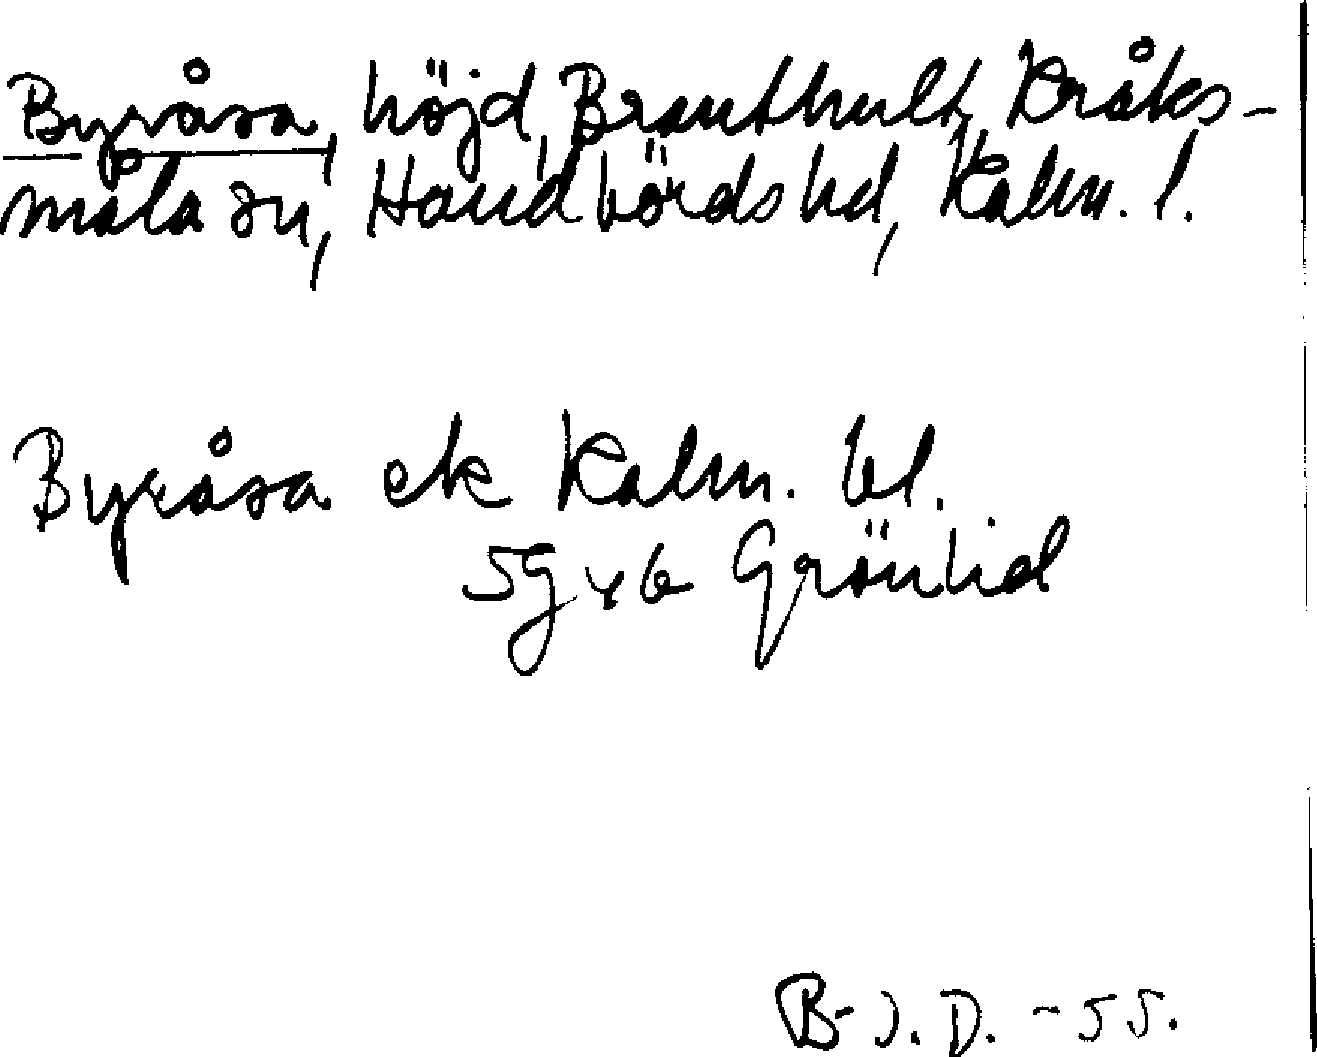 Byråsa, höjd, Branthult, Kråks-
måla sn, Handbörds hd, Kalm. l.
Byråsa ek Kalm. bl.
5g v b Grönlid
B-J. D. -55.